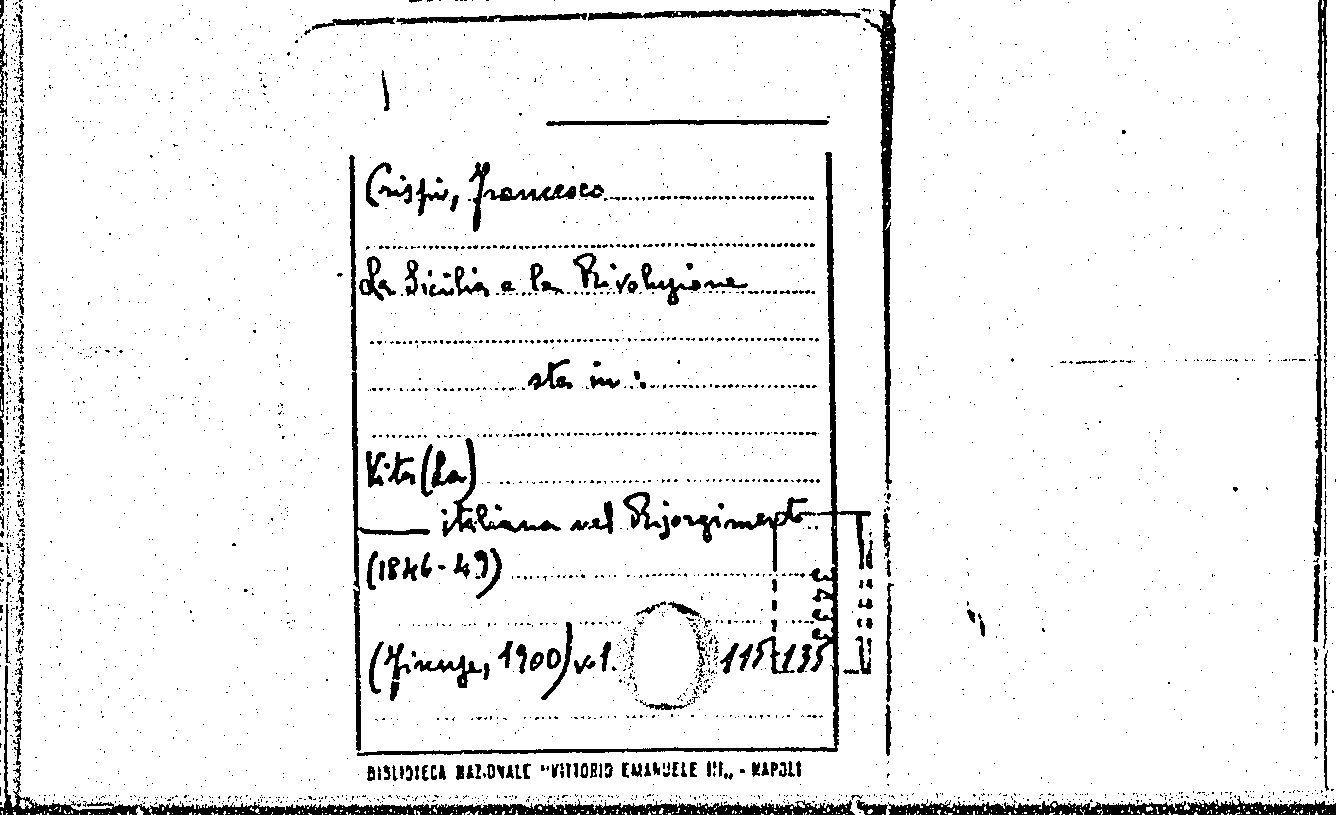 Crispi, Francesco
La Sicilia e la Rivoluzione
sta in :
Vita (La)
___ italiana nel Risorgimento
(1846-49)
(Firenze, 1900) vol. 115-135
3433
BIBLIOTECA NAZIONALE "VITTORIO EMANUELE III„ - NAPOLI